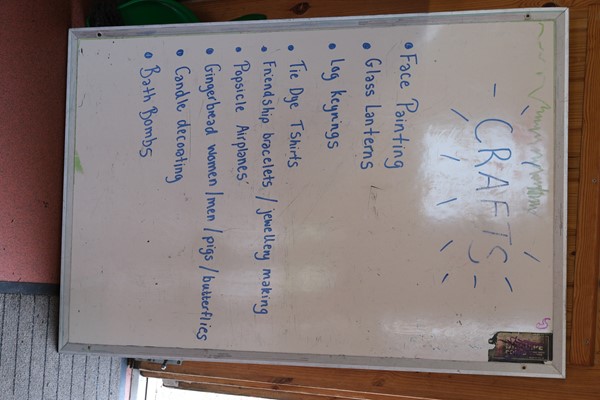 CRAFTS
• Face Painting
• Glass Lanterns
• Log Keyrings
• Tie Dye Tshirts
• Friendship bracelets / jewellery making
• Popsicle Airplanes
• Gingerbread women /men /pigs /butterflies
• Candle decorating
• Bath Bombs